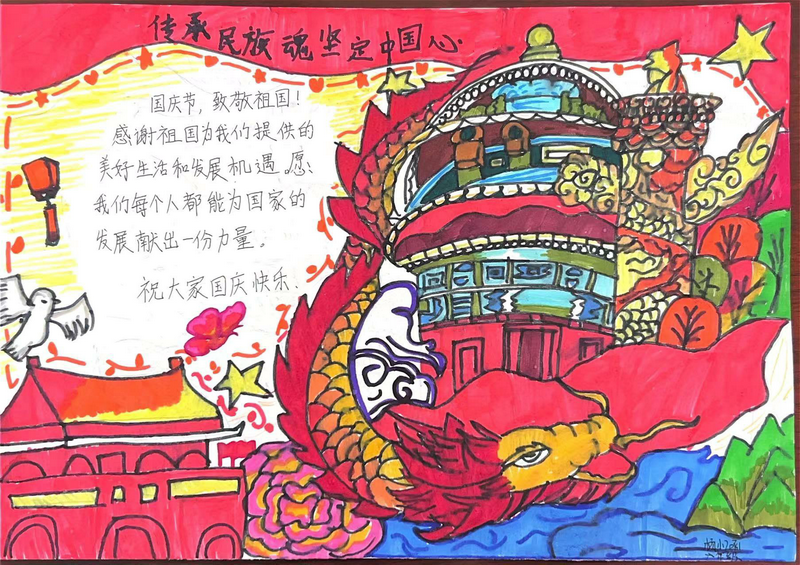 传承民族魂坚定中国心
国庆节，致敬祖国！
感谢祖国为我们提供的
美好生活和发展机遇。愿：
我们每个人都能为国家的
发展献出一份力量。
祝大家国庆快乐.